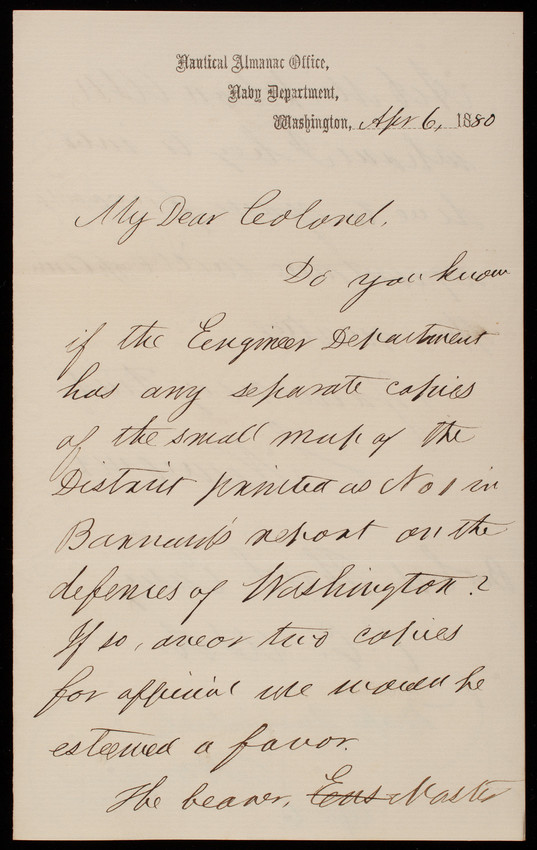 Nautical Almanac Office,
Navy Department,
Washington, Apr 6, 1880
My Dear Colonel,
Do you know
if the Engineer Department
has any separate copies
of the small map of the
District printed as No 1 in
Barnard's report on the
defenses of Washington?
If so, one or two copies
for official use would be
esteemed a favor.
The bearer, Ens Master